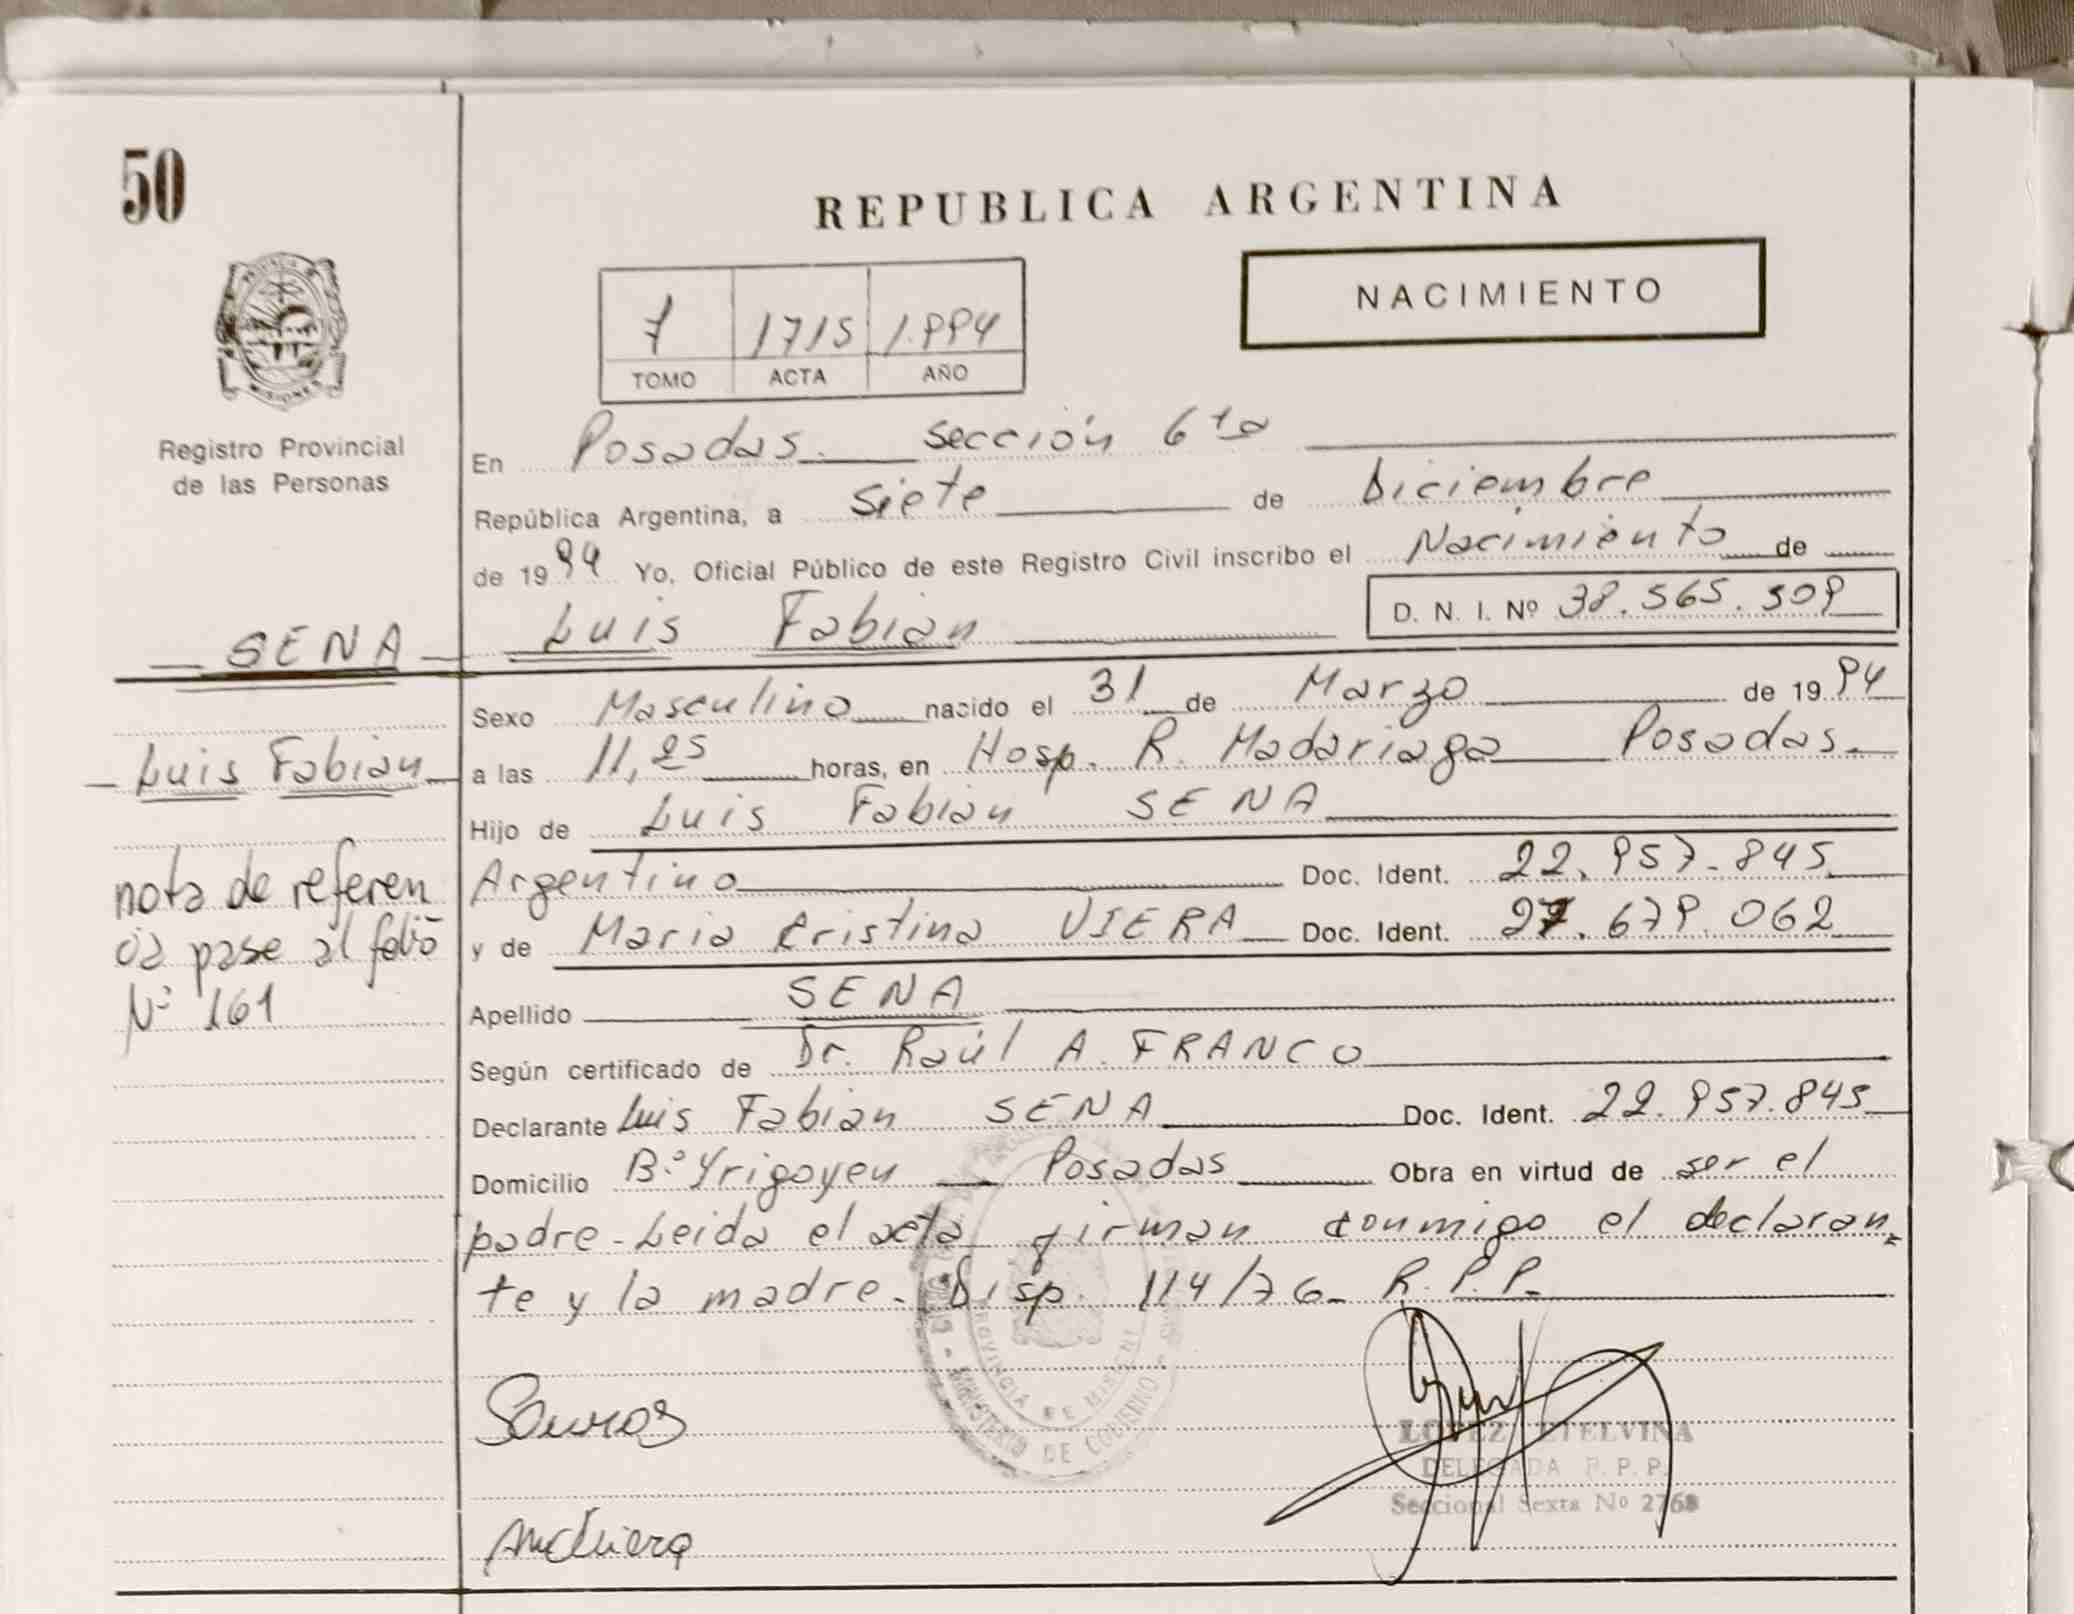 50
REPUBLICA ARGENTINA
NACIMIENTO
7 1715 1.994
TOMO ACTA AÑO
Registro Provincial
de las Personas
En Posadas. sección 6ta
República Argentina, a siete de Diciembre
de 1994 Yo, Oficial Público de este Registro Civil inscribo el Nacimiento de
D. N. I. Nº 38.565.509
SENA Luis Fabian
Sexo Masculino nacido el 31 de Marzo de 1994
Luis Fabian
a las 11,25 horas, en Hosp. R. Madariaga Posadas.
Hijo de Luis Fabian SENA
nota de referen
cia pase al folio
Nº 161
Argentino Doc. Ident. 22.957.845
y de Maria Cristina VIERA Doc. Ident. 27.679.062
Apellido SENA
Según certificado de Dr. Raúl A. FRANCO
Declarante Luis Fabian SENA Doc. Ident. 22.957.845
Domicilio Bº Yrigoyen Posadas Obra en virtud de ser el
padre - Leida el acta firman conmigo el declaran
te y la madre. Disp. 114/76 R.P.P.
PROVINCIA DE MISIONES
MINISTERIO DE GOBIERNO
LOPEZ ETELVINA
DELEGADA R. P. P.
Seccional Sexta Nº 2768